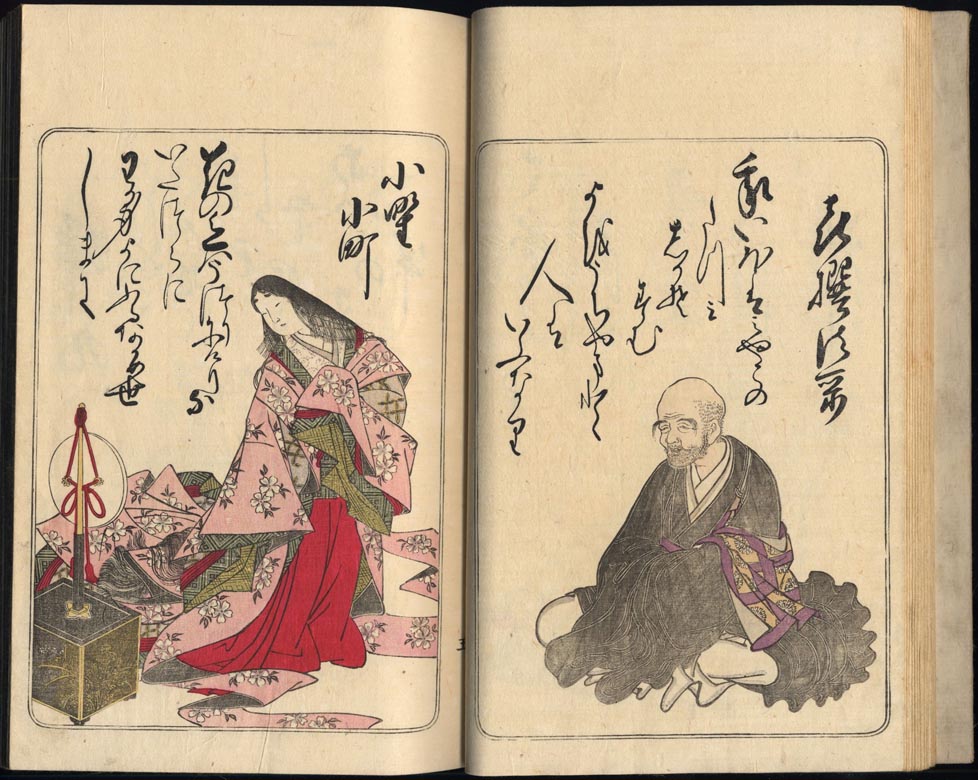 喜撰法師
我いほはみやこの
たつみ
しかそ
すむ
よをうちやまと
人は
いふなり
小野
小町
花の色はうつりにけりな
いたつらに
わか身よにふるなかめせ
しまに